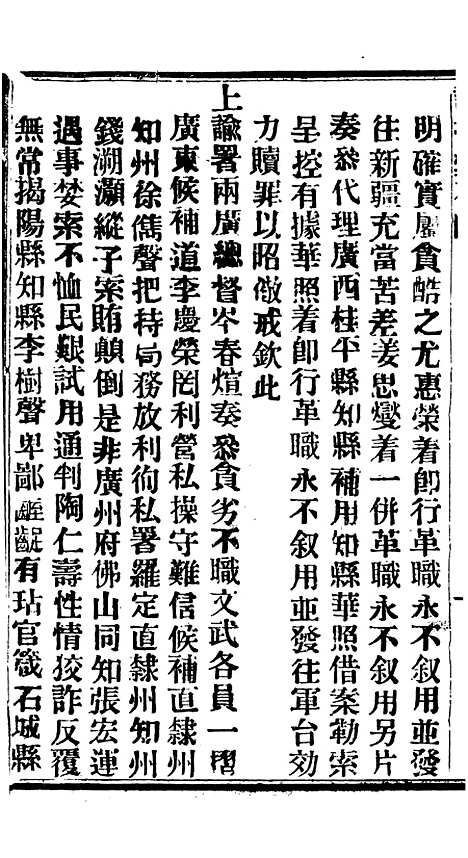 明確實屬貪酷之尤惠榮着卽行革職永不叙用並發
往新疆充當苦差姜思燮着一併革職永不叙用另片
奏叅代理廣西桂平縣知縣補用知縣華照借案勒索
呈控有據華照着卽行革職永不叙用並發往軍台効
力贖罪以昭儆戒欽此
上諭署兩廣總督岑春煊奏叅貪劣不職文武各員一摺
廣東候補道李慶榮罔利營私操守難信候補直隸州
知州徐儁聲把持局務放利徇私署羅定直隸州知州
錢溯灝縱子案賄顛倒是非廣州府佛山同知張宏運
遇事婪索不恤民艱試用通判陶仁壽性情狡詐反覆
無常揭陽縣知縣李樹聲卑鄙齷齪有玷官箴石城縣